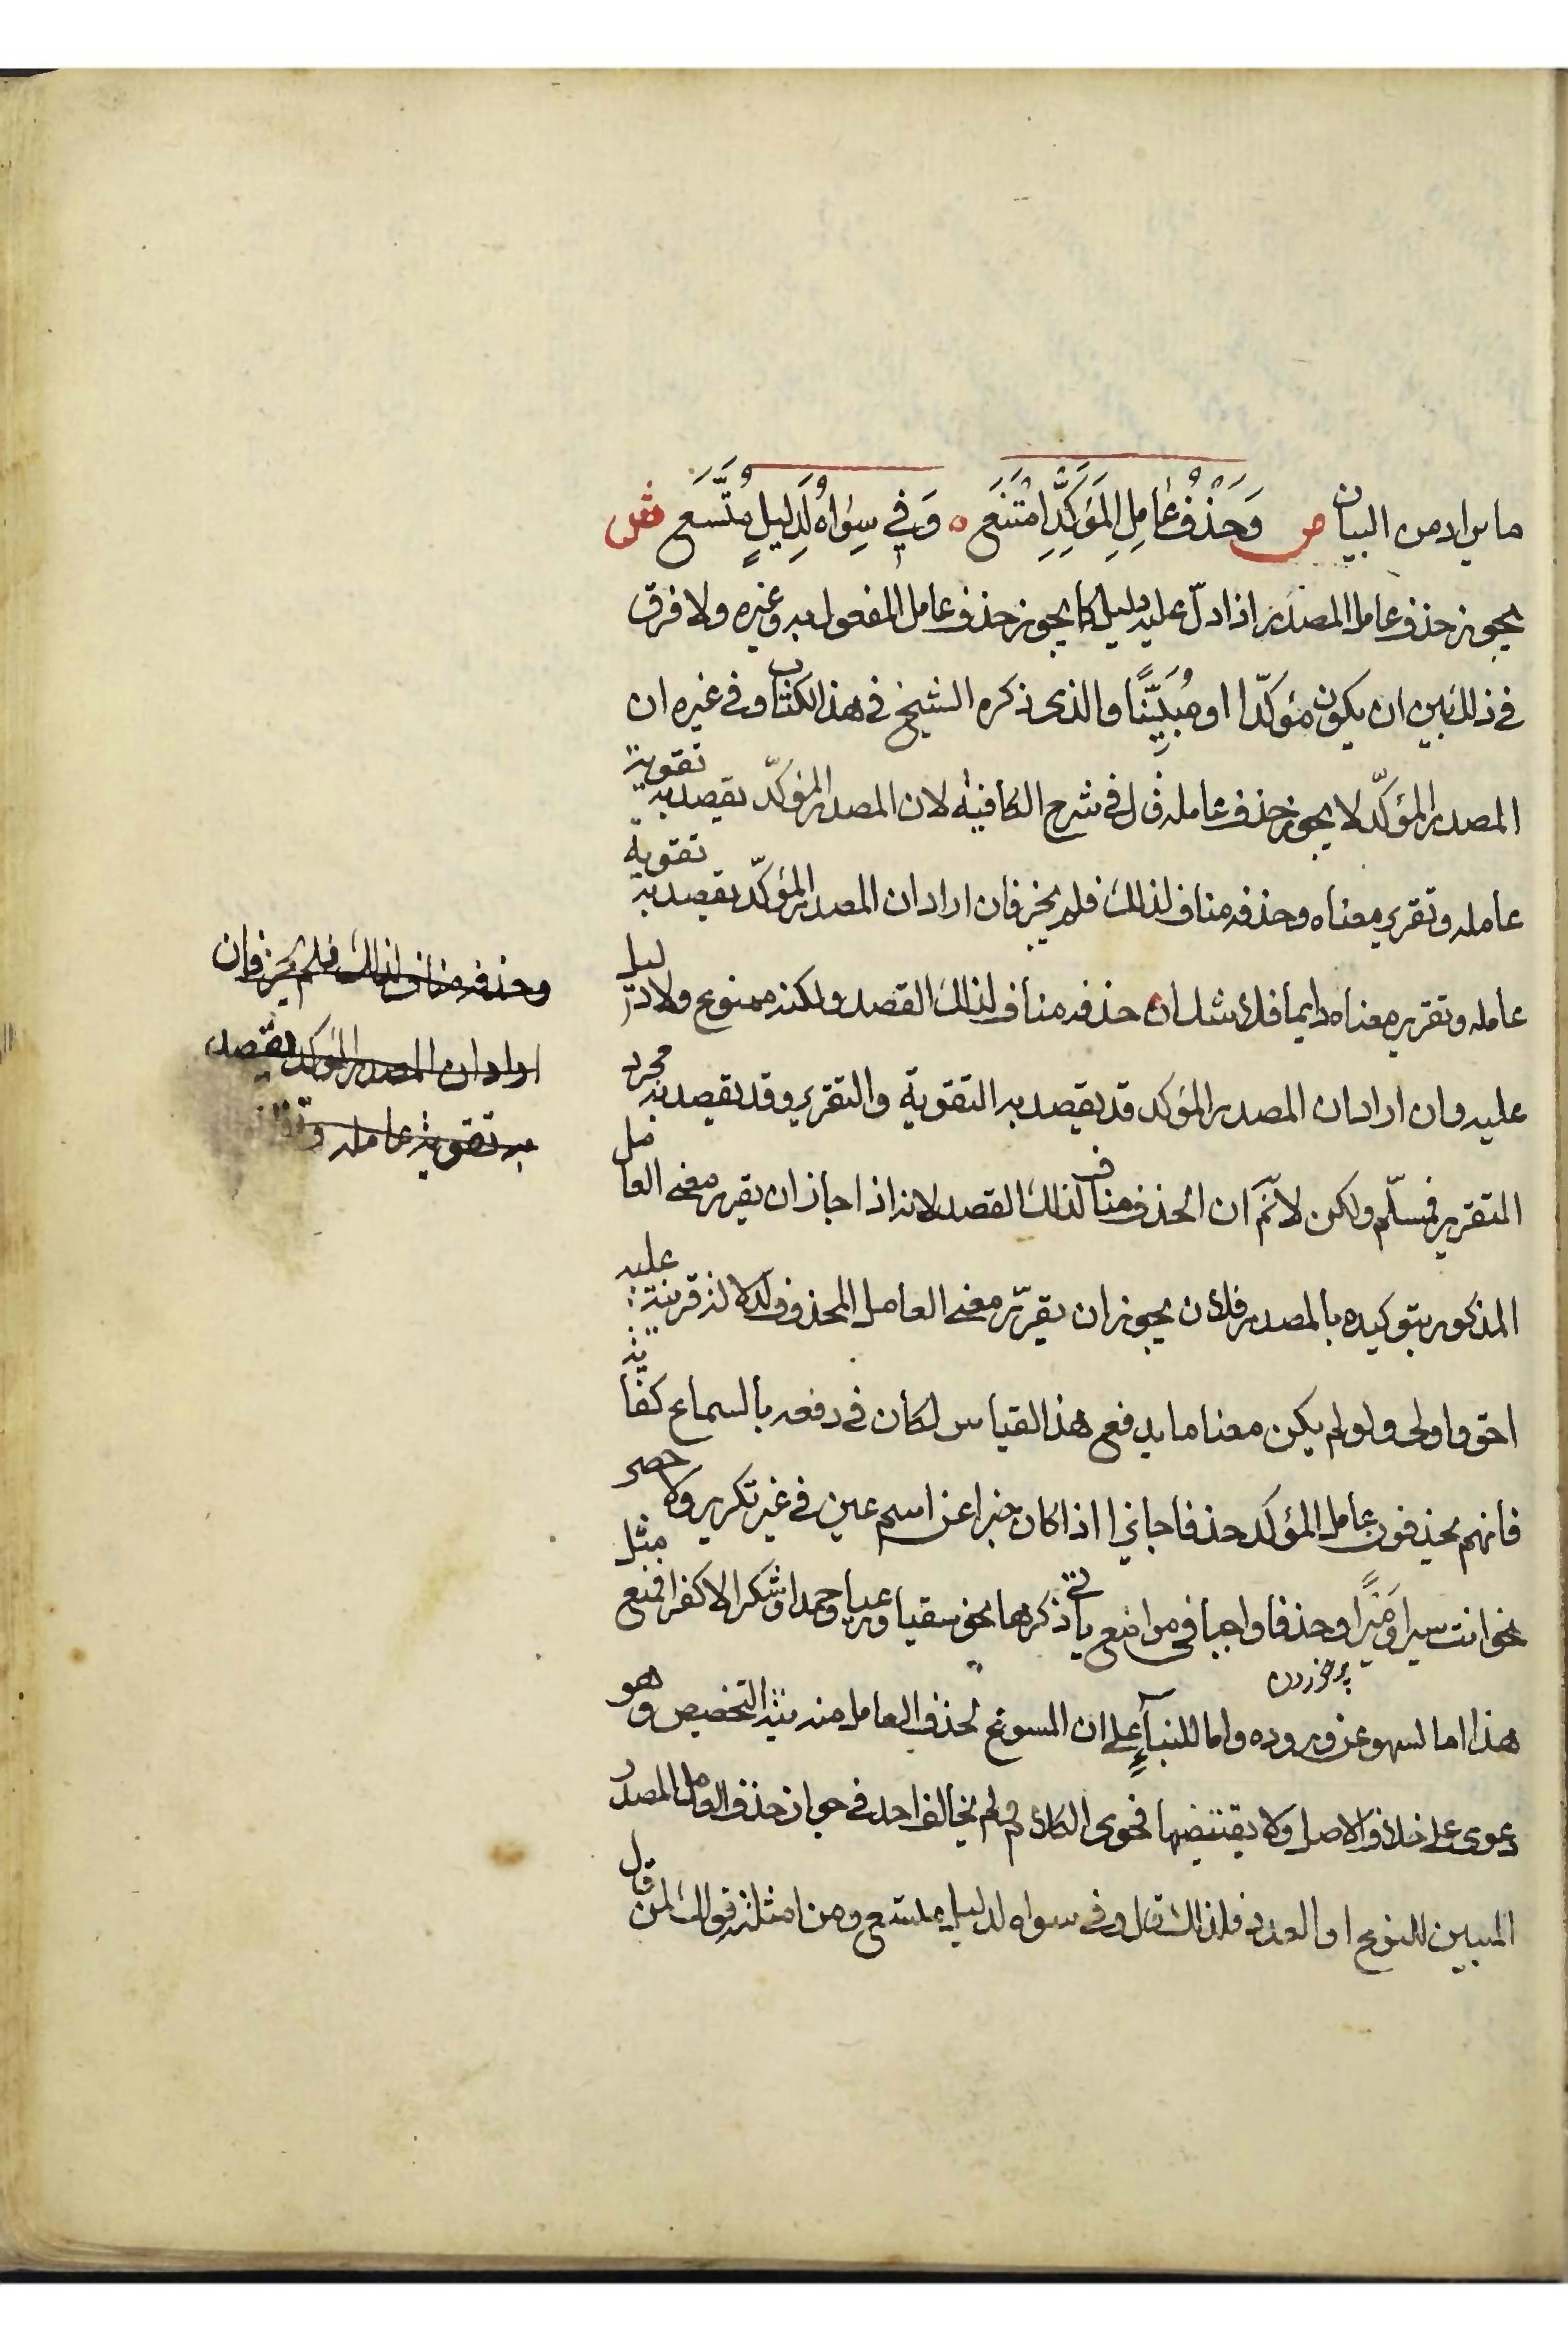 ما يراد من البيان ص وَحَذْفُ عَامِلِ المَؤَكِّدِ امْتَنَع ۰ وَفِي سِوَاهُ لِدَلِيلٍ مُتَّسَع ش
يجوز حذف عامل المصدر اذا دلّ عليه دليل كما يجوز حذف عامل المفعول به وغيره ولا فرق
في ذلك بين ان يكون مؤكدّا او مُبَيِّنًا والذى ذكره الشيخ في هذا الكتاب وفي غيره ان
المصدر المؤكدّ لا يجوز حذف عامله قال في شرح الكافية لان المصدر المؤكدّ يقصد به تقوية
عامله وتقرير معناه وحذفه مناف لذلك فلم يجز فان اراد ان المصدر المؤكدّ يقصد به تقوية
عامله وتقرير معناه دايما فلا شك ان حذفه مناف لذلك القصد ولكنه ممنوع ولا دليل
عليه وان اراد ان المصدر المؤكد قد يقصد به التقوية والتقرير وقد يقصد به مجرد
التقرير فمسلّم ولكن لانّم ان الحذف مناف لذلك القصد لانه اذا جاز ان يقرر معنى العامل
المذكور بتوكيده بالمصدر فلان يجوز ان يقرّر معنى العامل المحذوف لدلالة قرينة عليه
احق واولى ولو لم يكن معنا ما يدفع هذا القياس لكان في دفعه بالسماع كفاية
فانهم يحذفون عامل المؤكد حذفا جايزا اذا كان خبرا عن اسم عين في غير تكرير ولا حصر
نحو انت سيرا ومَيْرًا وحذفا واجبا في مواضع ياتي ذكرها نحو سقيا ورعيا وحمدا وشكرا لا كفرا فمنع مثل
هذا اما لسهو عن وروده واما للبنآءِ على ان المسوغ لحذف العامل منه نية التخصيص وهو
دعوى على خلاف الاصل ولا يقتضيها فحوى الكلام ولم يخالف احد في جواز حذف العامل المصدر
المبين للنوع او العدد فلذلك قال وفي سواه لدليل متسع ومن امثلته قولك لمن قال
وحذفه مناف لذلك فلم يجز فان
اراد ان المصدر المؤكد يقصد
به تقوية عامله